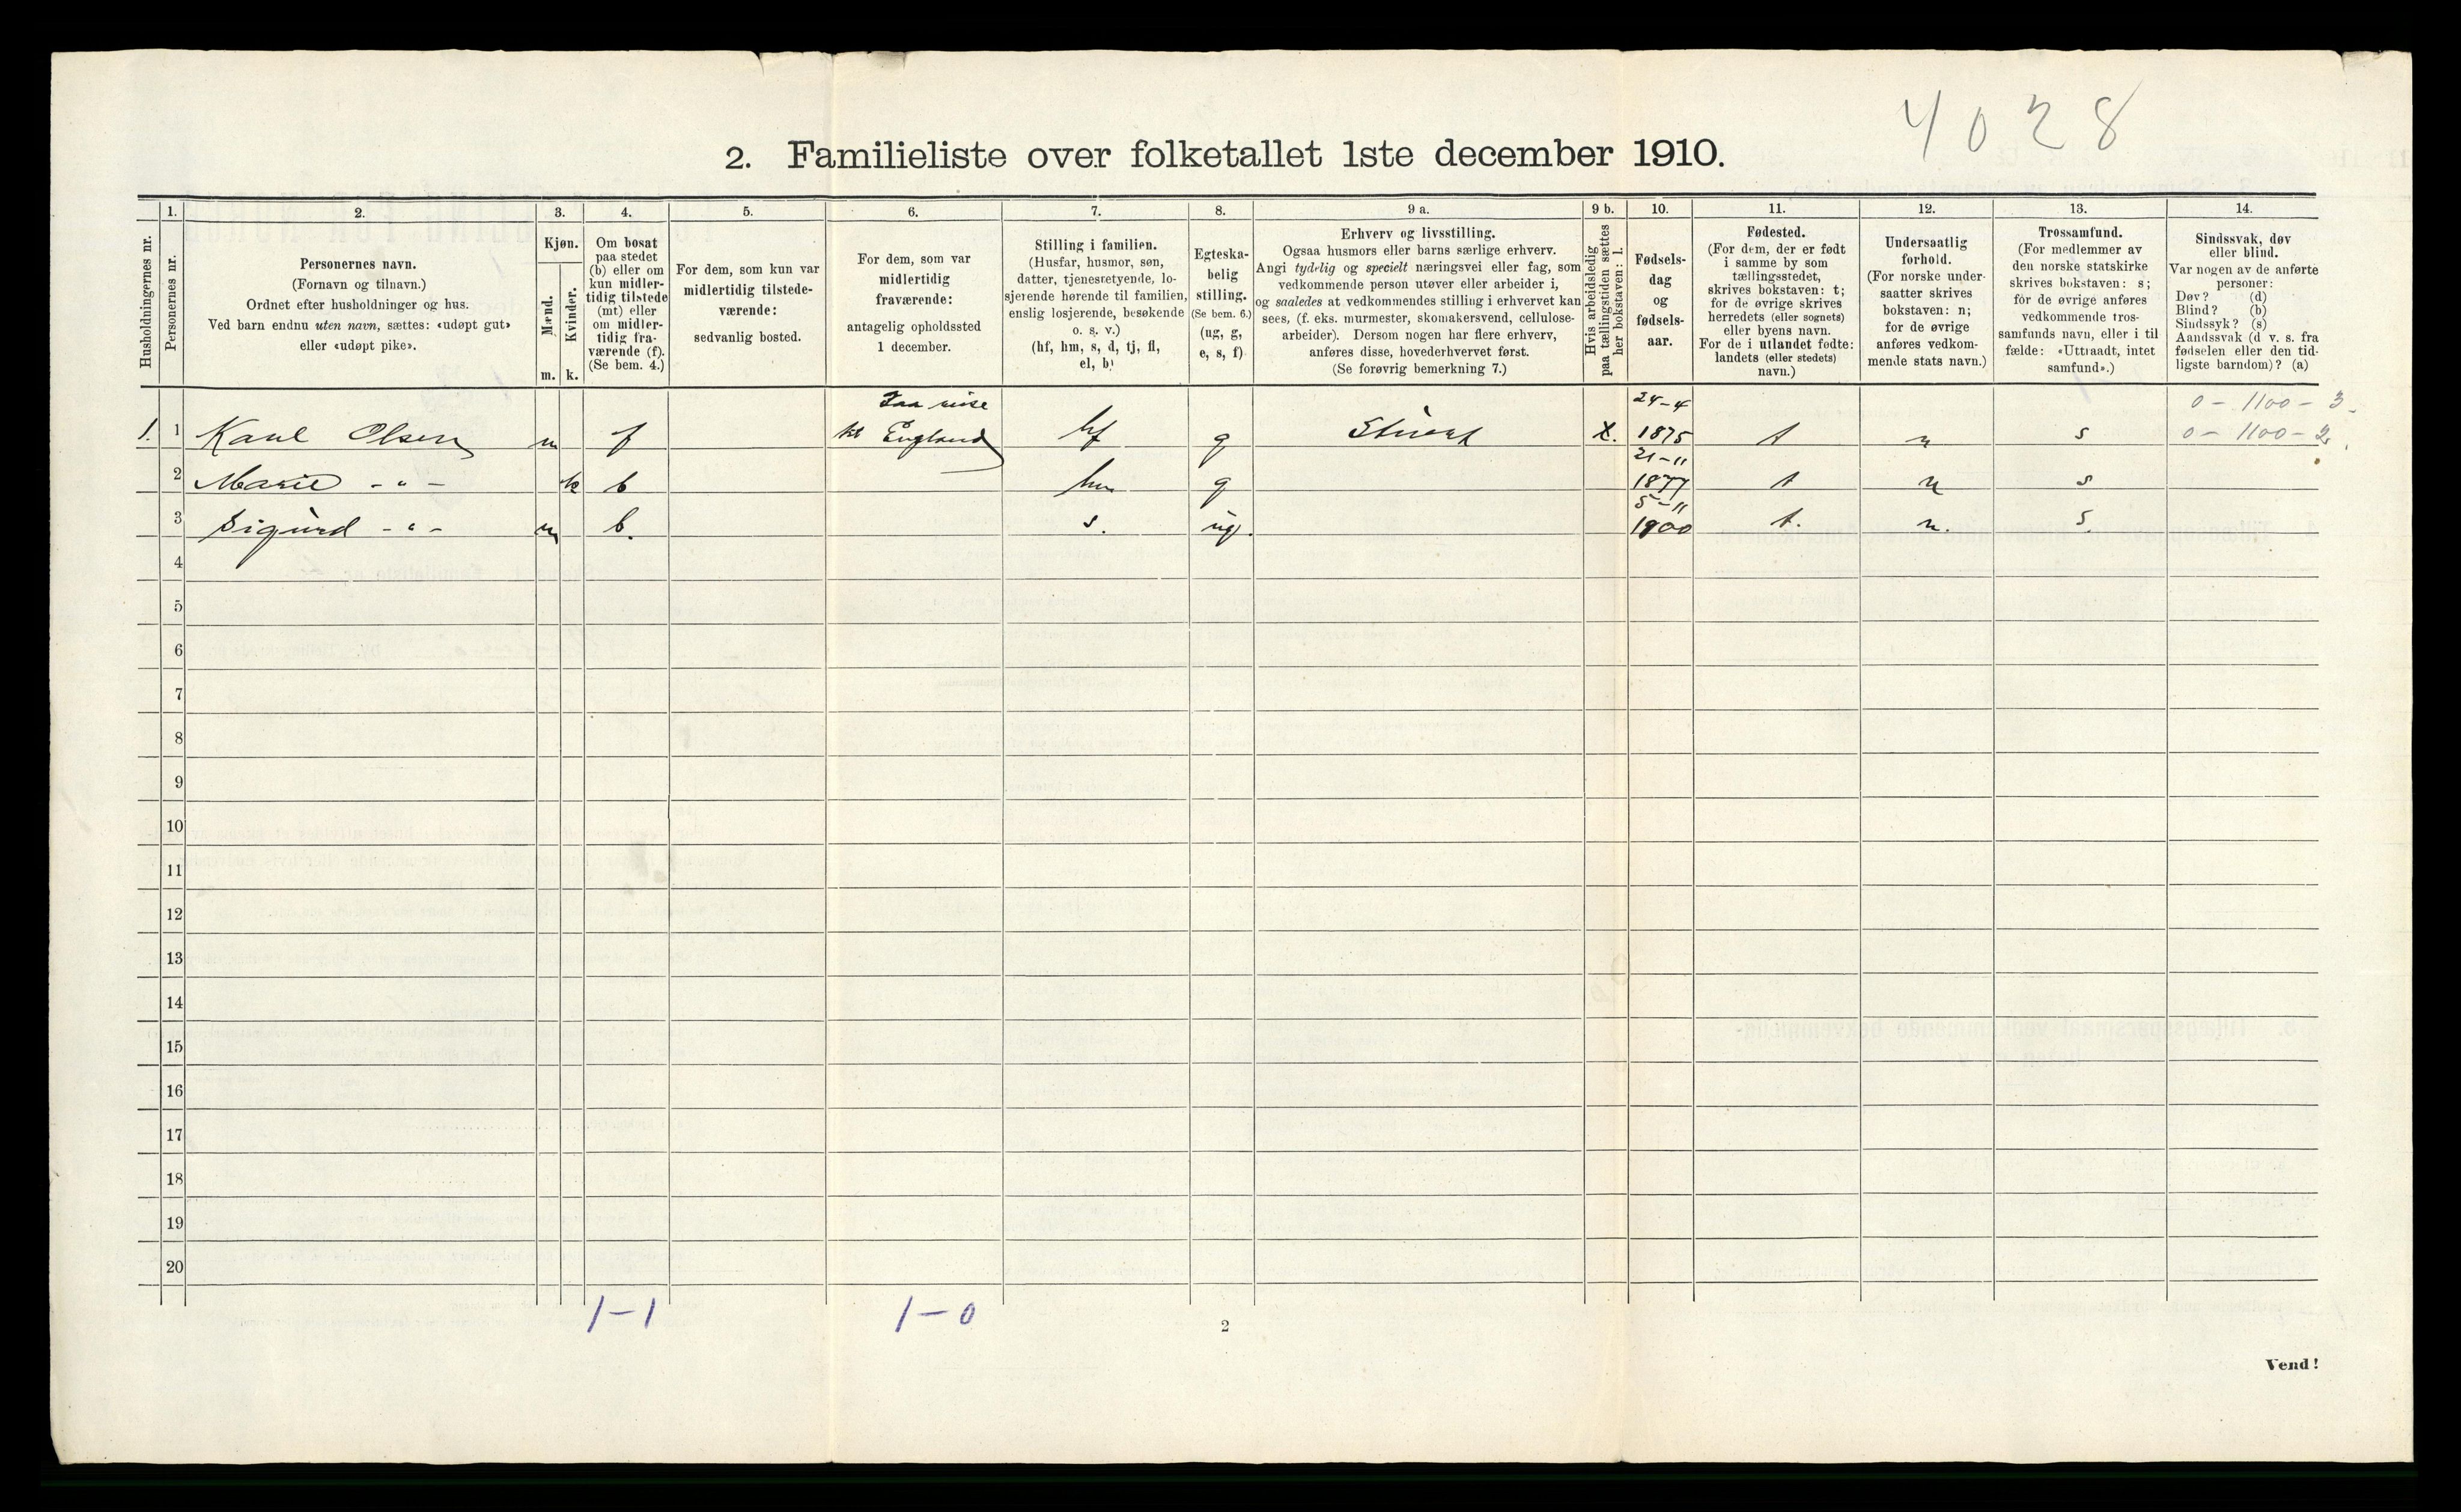 4028
2. Familieliste over folketallet 1ste december 1910.
Husholdningernes nr.
1.
Personernes nr.
2.
Personernes navn.
(Fornavn og tilnavn.)
Ordnet efter husholdninger og hus.
Ved barn endnu uten navn, sættes: «udøpt gut»
eller «udøpt pike».
3.
Kjøn.
Mænd.
m.
Kvinder.
k.
4.
Om bosat
paa stedet
(b) eller om
kun midler-
tidig tilstede
(mt) eller
om midler-
tidig fra-
værende (f).
(Se bem. 4.)
5.
For dem, som kun var
midlertidig tilstede-
værende:
sedvanlig bosted.
6.
For dem, som var
midlertidig
fraværende:
antagelig opholdssted
1 december.
7.
Stilling i familien.
(Husfar, husmor, søn,
datter, tjenestetyende, lo-
sjerende hørende til familien,
enslig losjerende, besøkende
o. s. v.)
(hf, hm, s, d, tj, fl,
el, b)
8.
Egteska-
belig
stilling.
(Se bem. 6.)
(ug, g,
e, s, f)
9 a.
Erhverv og livsstilling.
Ogsaa husmors eller barns særlige erhverv.
Angi tydelig og specielt næringsvei eller fag, som
vedkommende person utøver eller arbeider i,
og saaledes at vedkommendes stilling i erhvervet kan
sees, (f. eks. murmester, skomakersvend, cellulose-
arbeider). Dersom nogen har flere erhverv,
anføres disse, hovederhvervet først.
(Se forøvrig bemerkning 7.)
9 b.
Hvis arbeidsledig
paa tællingstiden sættes
her bokstaven: l.
10.
Fødsels-
dag
og
fødsels-
aar.
11.
Fødested.
(For dem, der er født
i samme by som
tællingsstedet,
skrives bokstaven: t;
for de øvrige skrives
herredets (eller sognets)
eller byens navn.
For de i utlandet fødte:
landets (eller stedets)
navn.)
12.
Undersaatlig
forhold.
(For norske under-
saatter skrives
bokstaven: n;
for de øvrige
anføres vedkom-
mende stats navn.)
13.
Trossamfund.
(For medlemmer av
den norske statskirke
skrives bokstaven: s;
for de øvrige anføres
vedkommende tros-
samfunds navn, eller i til-
fælde: «Uttraadt, intet
samfund».)
14.
Sindssvak, døv
eller blind.
Var nogen av de anførte
personer:
Døv? (d)
Blind? (b)
Sindssyk? (s)
Aandssvak (d v. s. fra
fødselen eller den tid-
ligste barndom)? (a)
Paa reise 24-4 0 - 1100 - 3
1. 1 Karl Olsen m f til England hf g Stuert X. 1875 t n s 0 - 1100 - 2
21-11
2 Marie - " - k b hm g 1877 t n s
5-11
3 Sigurd - " - m b. s. ug. 1900 t. n. s.
4
5
6
7
8
9
10
11
12
13
14
15
16
17
18
19
20
1-1 1-0
2
Vend!